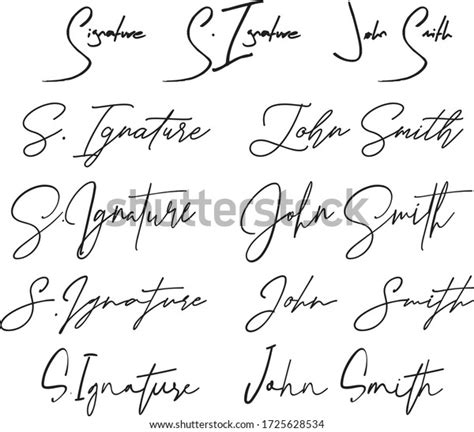 Signature S. Ignature John Smith
S. Ignature John Smith
S. Ignature John Smith
shutterstock
S. Ignature John Smith
S. Ignature John Smith
shutterstock.com · 1725628534